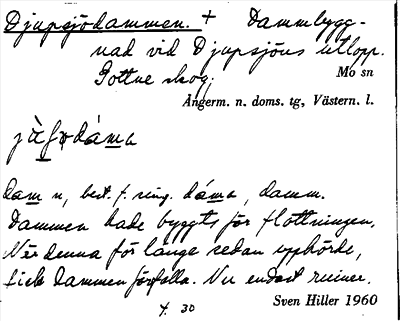 Djupsjödammen. + Dammbygg-
nad vid Djupsjöns utlopp.
Gottne skog.
Mo sn
Ångerm. n. doms. tg, Västern. l.
dam n, best. f. sing. dáma, damm.
Dammen hade byggts för flottningen.
När denna för länge sedan upphörde,
fick dammen förfalla. Nu endast ruiner.
Sven Hiller 1960
30